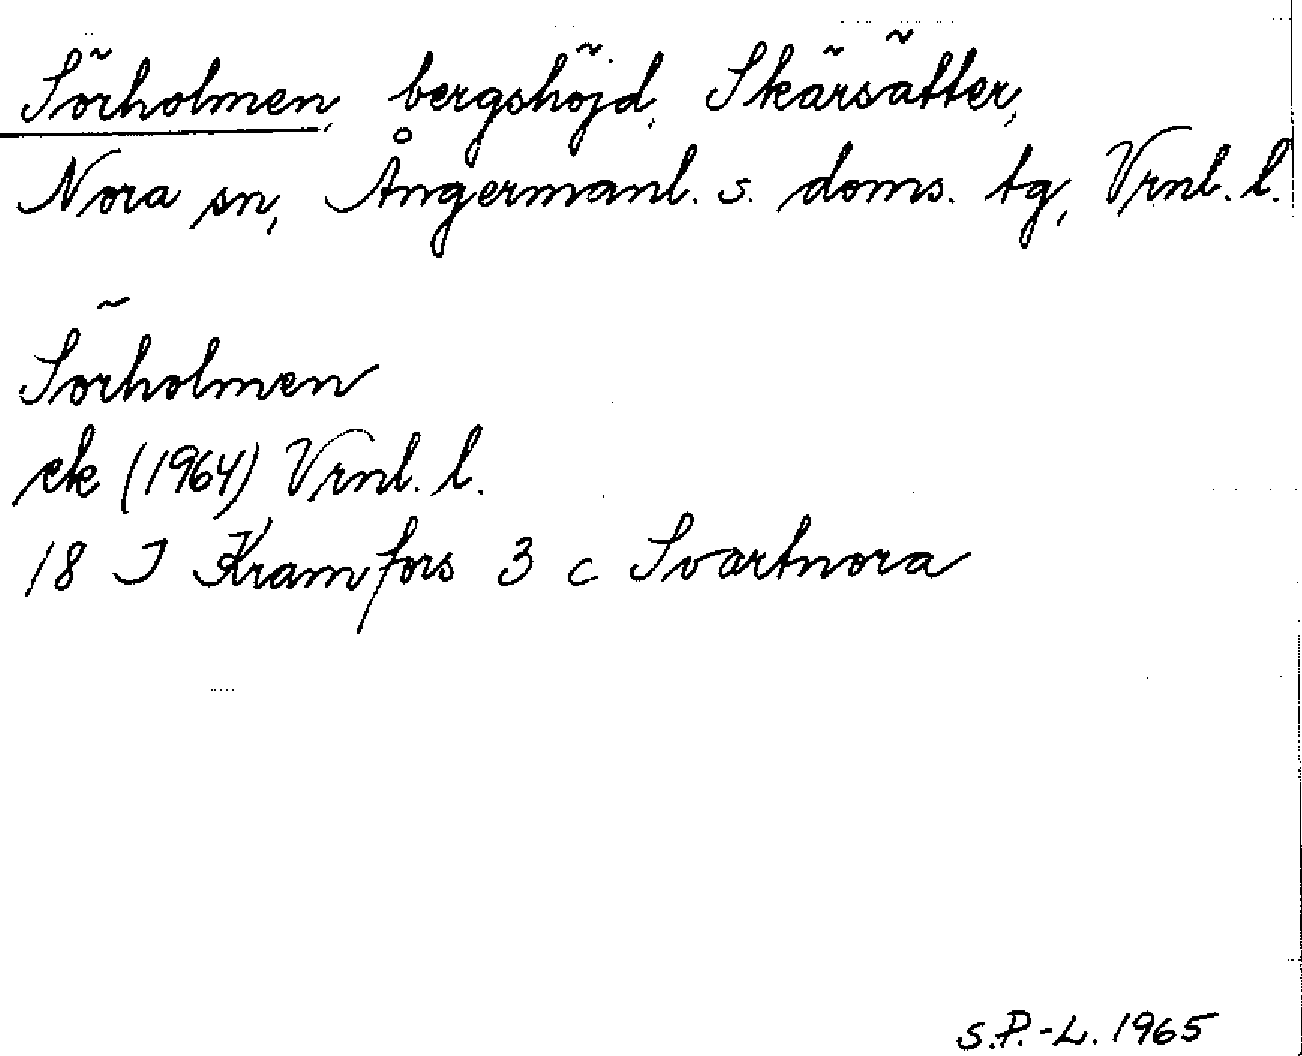 Sörholmen, bergshöjd, Skärsätter,
Nora sn, Ångermanl. s. doms. tg, Vrnl. l.
Sörholmen
ek (1964) Vrnl. l.
18 J Kramfors 3 c Svartnora
S.P.-L. 1965